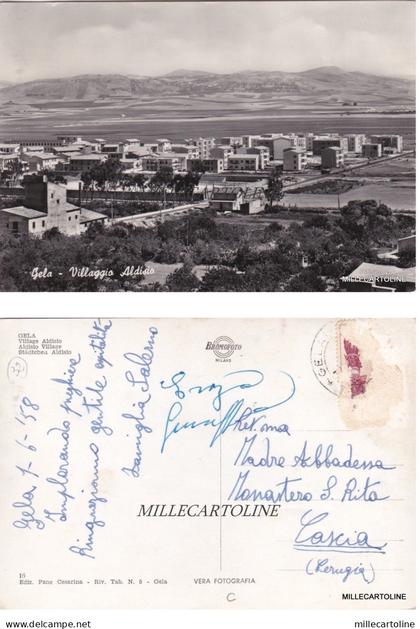 Gela - Villaggio Aldisio
MILLECARTOLINE
GELA
Village Aldisio
Aldisio Village
Städtchen Aldisio
BROMOFOTO
MILANO
GELA
Gela, 1-6-'58
Implorando preghiere
Ringraziamo gentile ospitalità
Famiglia Salerno
Rev.ma
Madre Abbadessa
Monastero S. Rita
Cascia
(Perugia)
MILLECARTOLINE
MILLECARTOLINE
16
Ediz. Pane Cesarina - Riv. Tab. N. 5 - Gela
VERA FOTOGRAFIA
C
© millecartoline
www.millecartoline.com